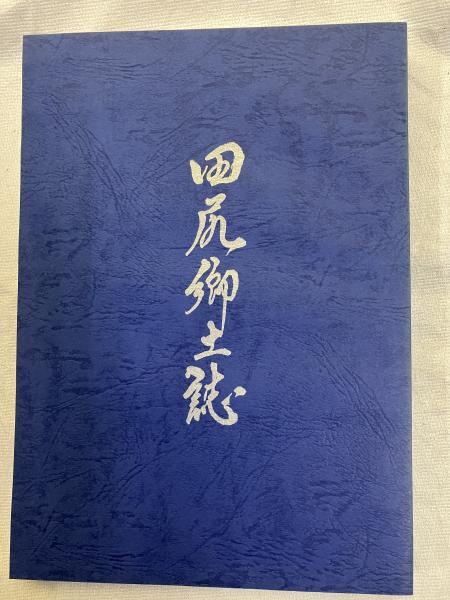 田尻郷土誌